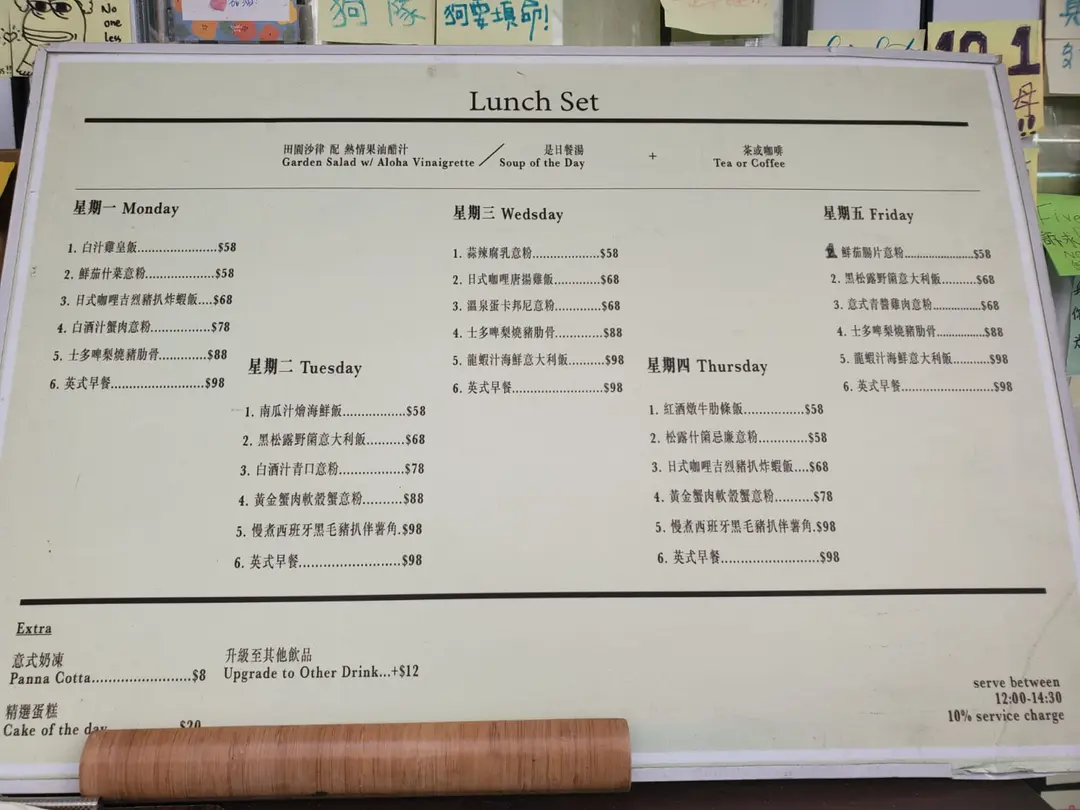 No
one
less
狗 隊
狗要填命!
Lunch Set
田園沙律 配 熱情果油醋汁
Garden Salad w/ Aloha Vinaigrette
是日餐湯
Soup of the Day
+
茶或咖啡
Tea or Coffee
星期一 Monday
1. 白汁雞皇飯......................$58
2. 鮮茄什菜意粉...................$58
3. 日式咖哩吉烈豬扒炸蝦飯....$68
4. 白酒汁蟹肉意粉................$78
5. 士多啤梨燒豬肋骨.............$88
6. 英式早餐..........................$98
星期二 Tuesday
1. 南瓜汁燴海鮮飯.................$58
2. 黑松露野菌意大利飯..........$68
3. 白酒汁青口意粉.................$78
4. 黃金蟹肉軟殼蟹意粉..........$88
5. 慢煮西班牙黑毛豬扒伴薯角.$98
6. 英式早餐...........................$98
星期三 Wedsday
1. 蒜辣腐乳意粉....................$58
2. 日式咖哩唐揚雞飯.............$68
3. 溫泉蛋卡邦尼意粉.............$68
4. 士多啤梨燒豬肋骨.............$88
5. 龍蝦汁海鮮意大利飯..........$98
6. 英式早餐...........................$98
星期四 Thursday
1. 紅酒燉牛肋條飯.................$58
2. 松露什菌忌廉意粉.............$58
3. 日式咖哩吉烈豬扒炸蝦飯....$68
4. 黃金蟹肉軟殼蟹意粉..........$78
5. 慢煮西班牙黑毛豬扒伴薯角.$98
6. 英式早餐...........................$98
星期五 Friday
鮮茄腸片意粉......................$58
2. 黑松露野菌意大利飯..........$68
3. 意式青醬雞肉意粉.............$68
4. 士多啤梨燒豬肋骨.............$88
5. 龍蝦汁海鮮意大利飯..........$98
6. 英式早餐...........................$98
Extra
意式奶凍
Panna Cotta........................$8
升級至其他飲品
Upgrade to Other Drink...+$12
精選蛋糕
Cake of the day $20
serve between
12:00-14:30
10% service charge